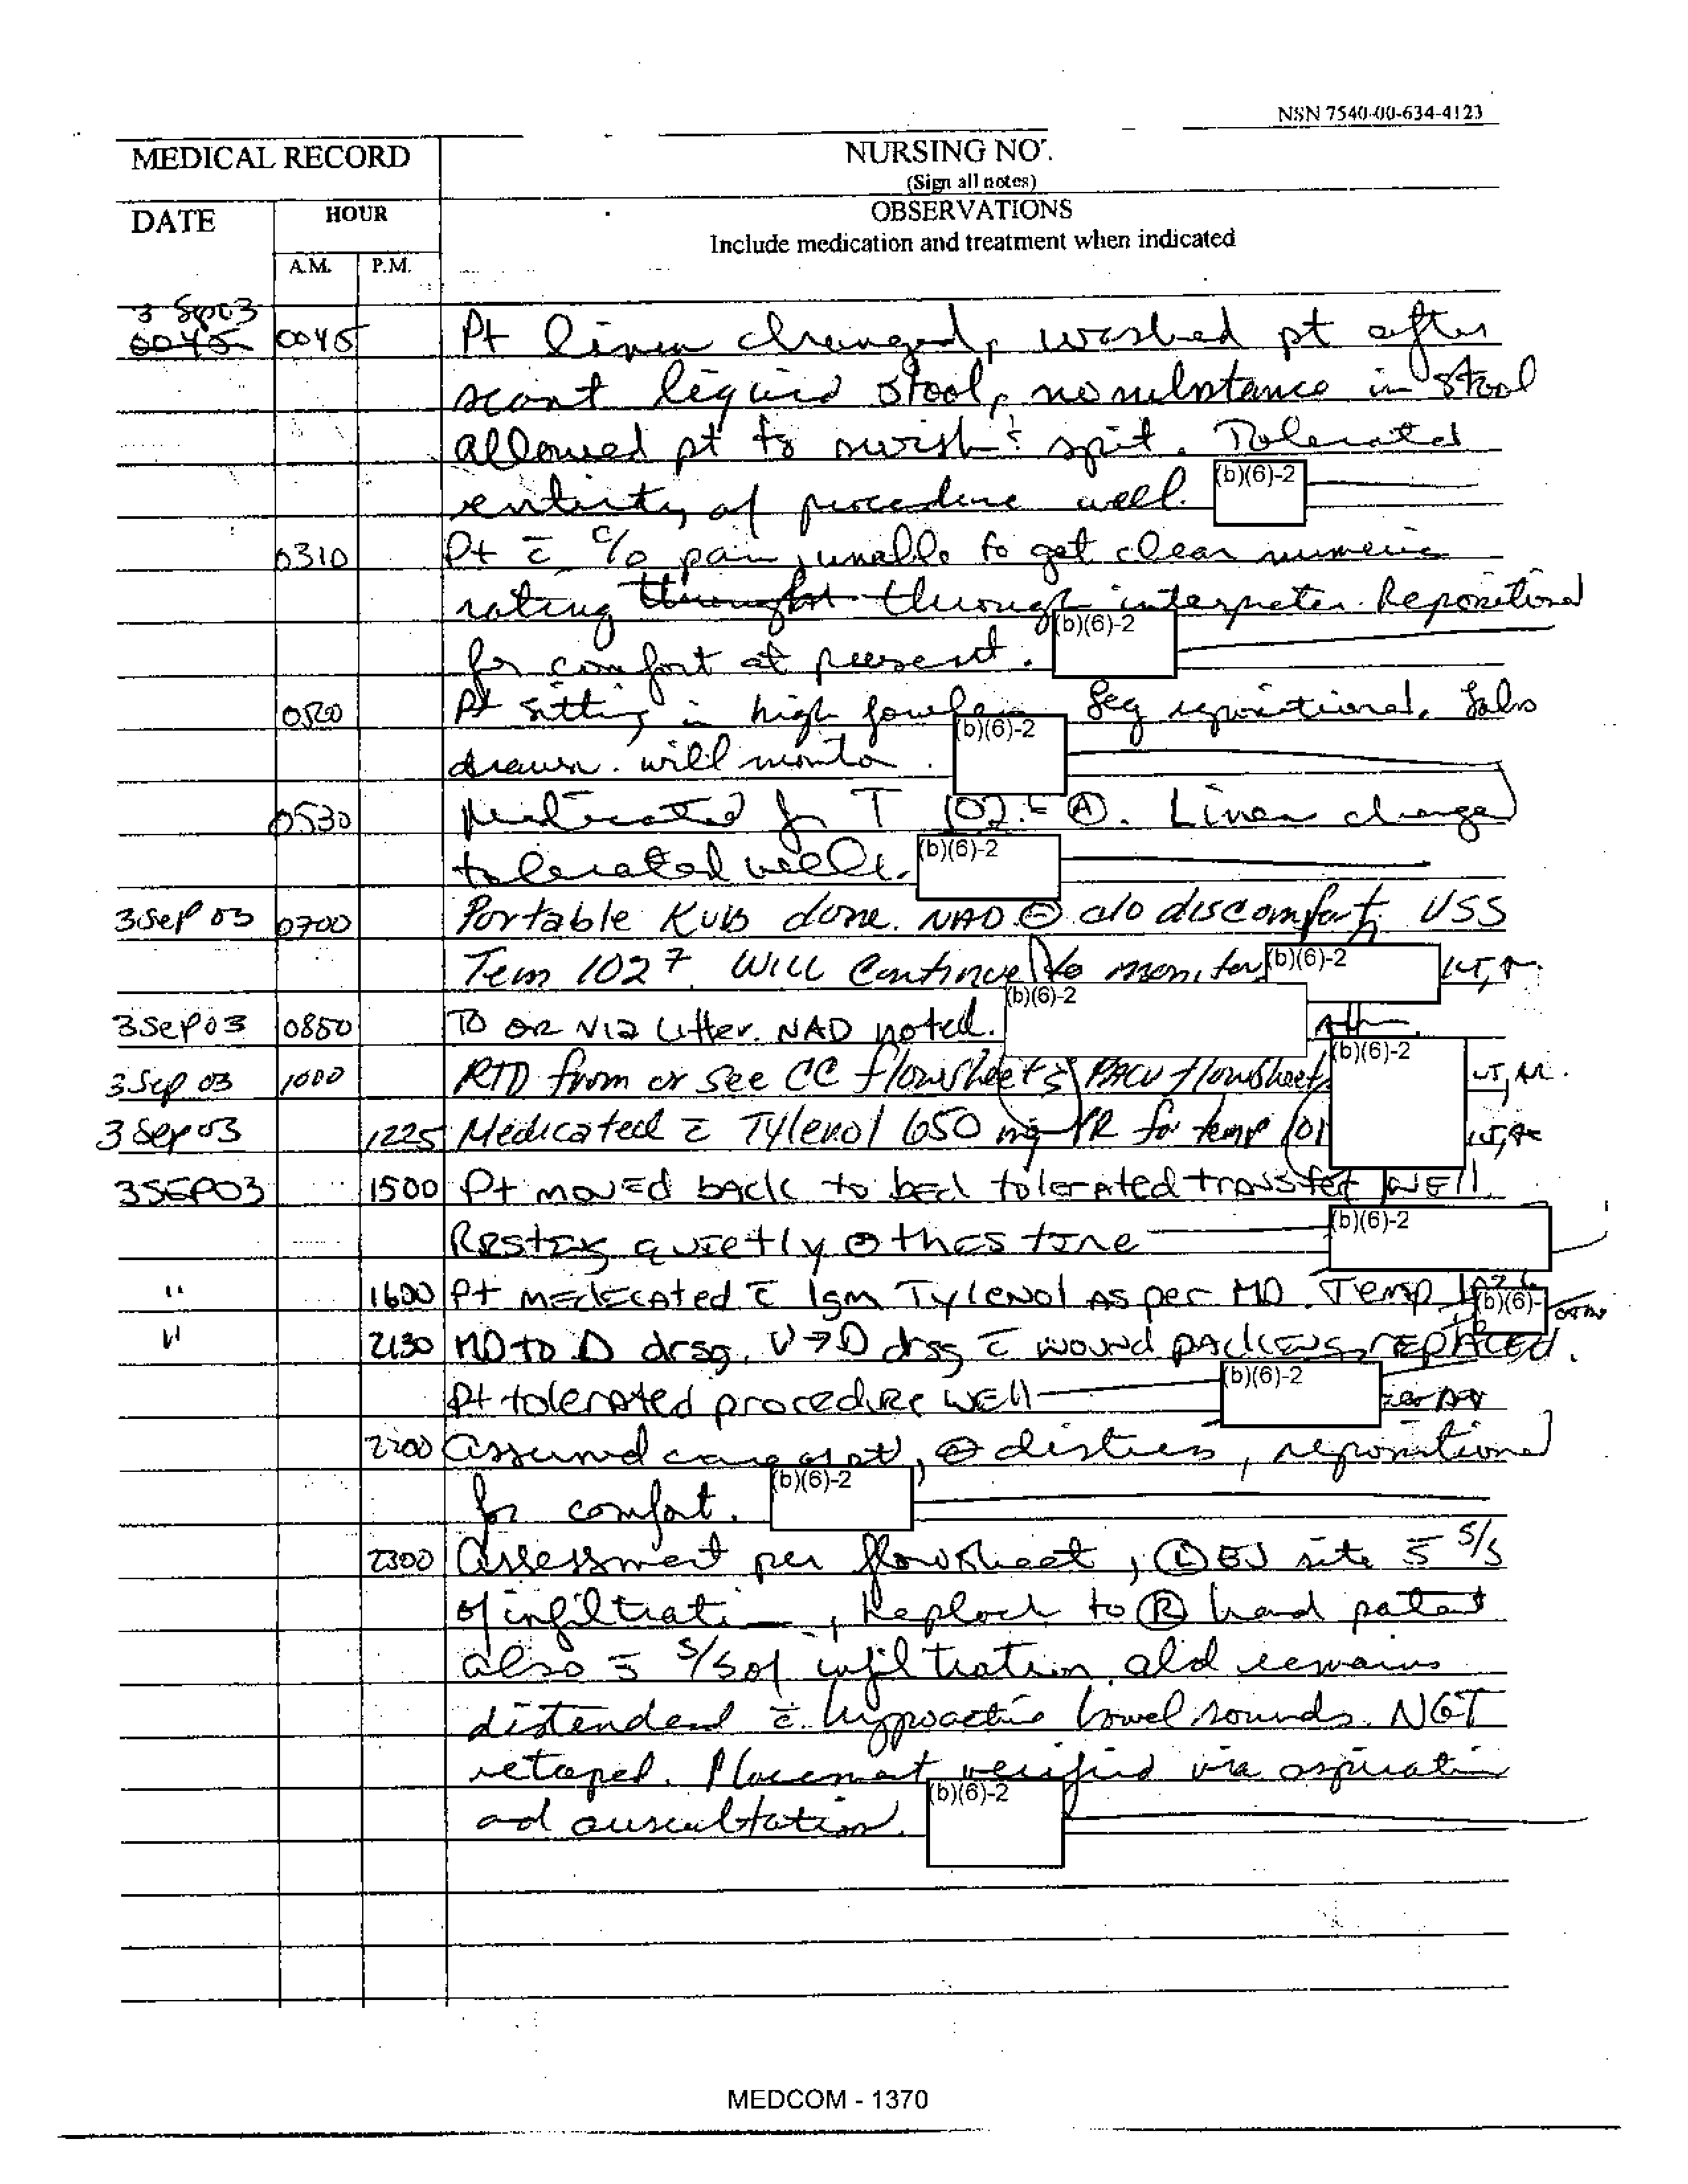 NSN 7540-00-634-4123
MEDICAL RECORD
NURSING NO
(Sign all notes)
DATE
HOUR
OBSERVATIONS
Include medication and treatment when indicated
A.M. P.M.
3 Sep 03
0045 0045 Pt linen changed, washed pt after
scant liquid stool, no substance in stool
allowed pt to swish & spit. Tolerated
entirety of procedure well. (b)(6)-2
0310 Pt c̄ c/o pain, unable to get clear numeric
rating through interpreter. Repositioned
for comfort at present. (b)(6)-2
0520 Pt sitting in high fowlers Leg repositioned. Labs
drawn. will monitor. (b)(6)-2
0530 Medicated for T 102. Ⓐ. Linen changed
tolerated well. (b)(6)-2
3 Sep 03 0700 Portable KUB done. NAD ⊖ c/o discomfort. VSS
Tem 102⁷. Will Continue to monitor (b)(6)-2
3 Sep 03 0850 To OR via litter. NAD noted. (b)(6)-2
3 Sep 03 1000 RTD from or see CC flowsheet & PACU flowsheet (b)(6)-2
3 Sep 03 1225 Medicated c̄ Tylenol 650 mg PR for temp 101
3 SEP 03 1500 Pt moved back to bed tolerated transfer well
Resting quietly @ this time (b)(6)-2
" 1600 Pt medicated c̄ 1gm Tylenol as per MD. Temp (b)(6)-
" 2130 MD to Δ drsg. W→D drsg c̄ wound packing replaced.
Pt tolerated procedure well (b)(6)-2
2200 Assumed care of pt, ⊖ distress, repositioned
for comfort. (b)(6)-2
2300 Assessment per flowsheet, Ⓛ EJ site s̄ s/s
of infiltration, Heplock to Ⓡ hand patent
also s̄ s/s of infiltration. abd remains
distended c̄ hypoactive bowel sounds. NGT
retaped. Placement verified via aspiration
and auscultation. (b)(6)-2
MEDCOM - 1370